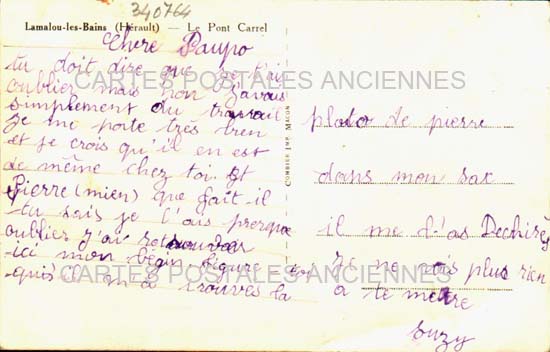 340764
Lamalou-les-Bains (Hérault) — Le Pont Carrel
Chere Paupo
tu doit dire que je t'ai
oublier mais non j'avais
simplement du travail
Je me porte très bien
et je crois qu'il en est
de même chez toi. Et
Pierre (mien) que fait-il
tu sais je l'ais presque
oublier J'ai retrouver
ici mon béguin figure
qu'il m'a trouver la
COMBIER IMP. MACON
photo de pierre
dans mon sac
il me l'as Dechirès
Je ne vois plus rien
a te metre
Suzy
CARTES POSTALES ANCIENNES
CARTES POSTALES ANCIENNES